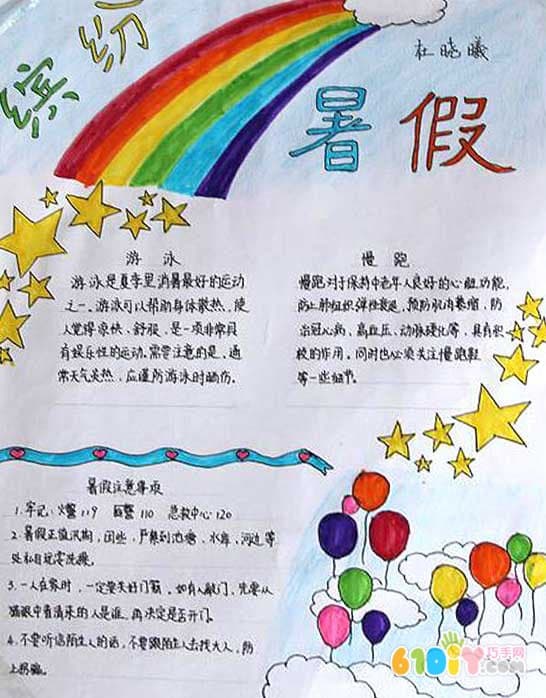 缤纷
杜晓曦
暑假
游泳
游泳是夏季里消暑最好的运动
之一。游泳可以帮助身体散热，使
人觉得凉快、舒服，是一项非常具
有娱乐性的运动。需要注意的是，通
常天气炎热，应谨防游泳时晒伤。
慢跑
慢跑对于保持中老年人良好的心脏功能，
防止肺组织弹性衰退，预防肌肉萎缩，防
治冠心病、高血压、动脉硬化等，具有积
极的作用。同时也必须关注慢跑鞋
等一些细节。
暑假注意事项
1.牢记：火警119 匪警110 急救中心120
2.暑假正值汛期，因些，严禁到池塘、水库、河边等
处私自玩耍洗澡。
3.一人在家时，一定要关好门窗，如有人敲门，先要从
猫眼中看清来的人是谁，再决定是否开门。
4.不要听信陌生人的话，不要跟陌生人去找大人，防
上拐骗。
610iY.com
巧手网